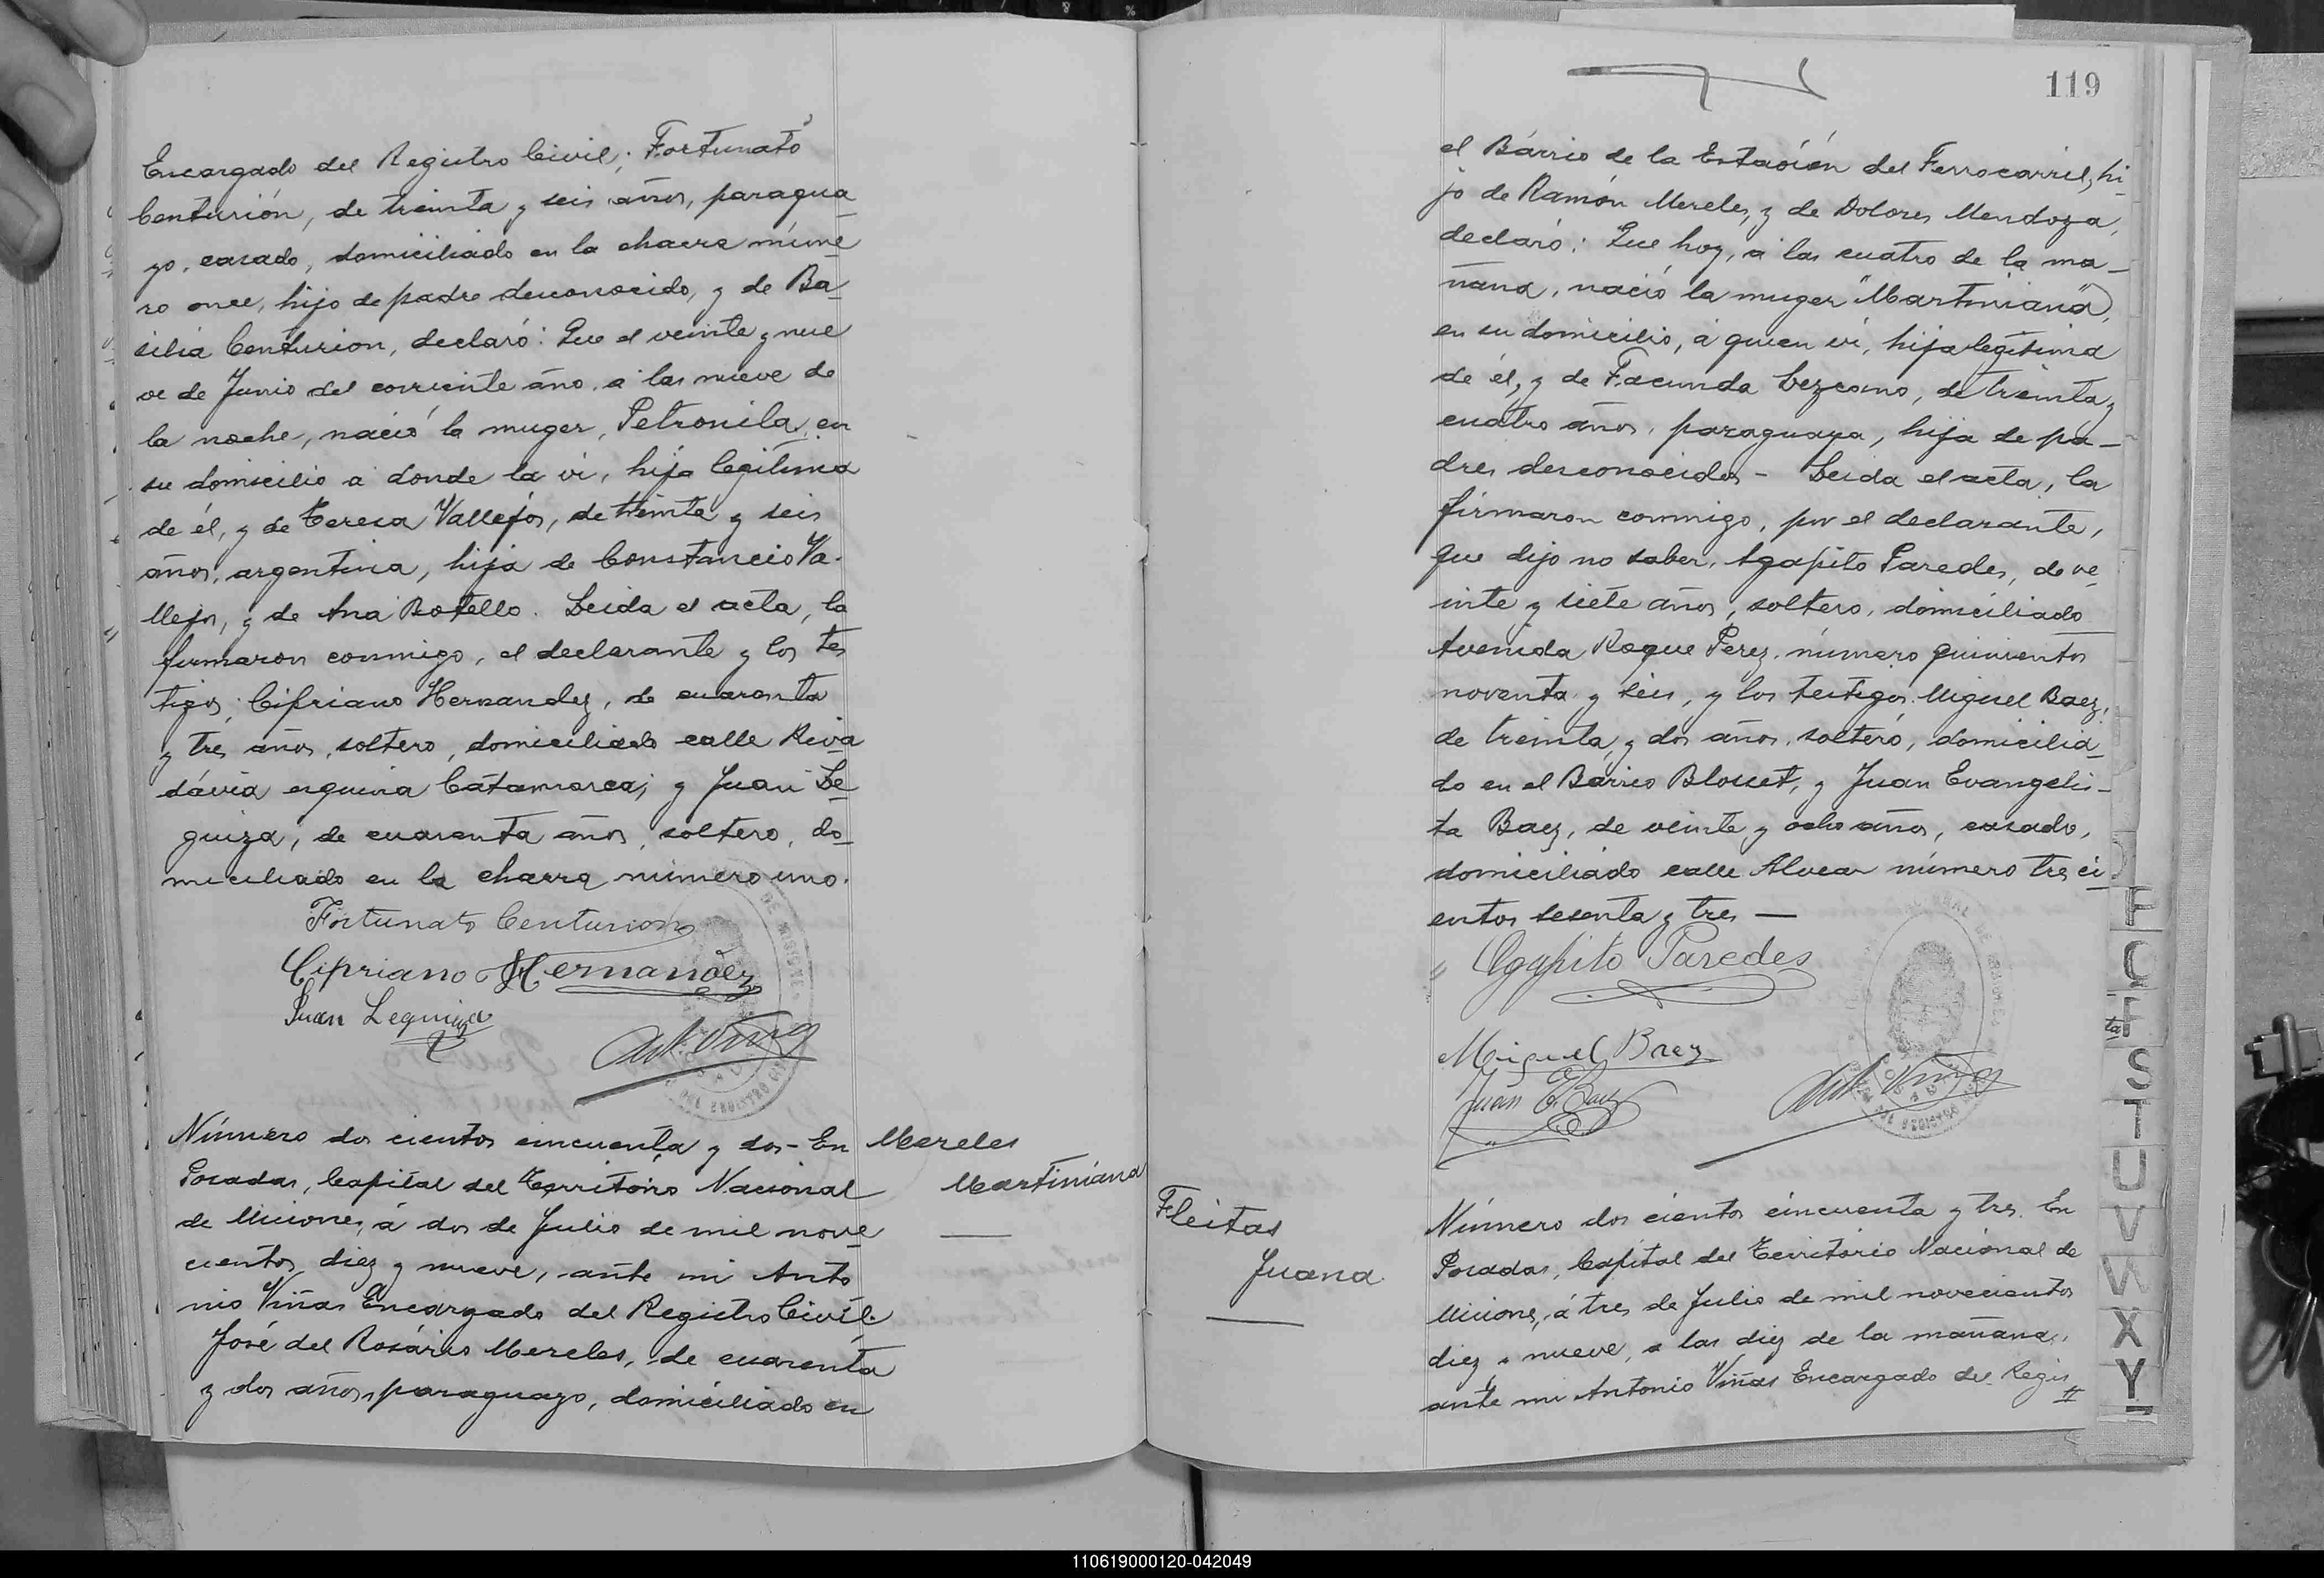 Encargado del Registro Civil; Fortunato
Centurión, de treinta y seis años, paragua
yo, casado, domiciliado en la chacra núme
ro once, hijo de padre desconocido, y de Ba
silia Centurion, declaró: Que el veinte y nue
ve de Junio del corriente año, a las nueve de
la noche, nació la muger, Petronila, en
su domicilio a donde la vi, hija legitima
de él, y de Teresa Vallejos, de treinta y seis
años, argentina, hija de Constancio Va
llejos, y de Ana Botello. Leida el acta, la
firmaron conmigo, el declarante y los tes
tigos; Cipriano Hernandez, de cuarenta
y tres años, soltero, domiciliado calle Riva
dávia esquina Catamarca; y Juan Le
guiza, de cuarenta años, soltero, do
miciliado en la chacra número uno.
Fortunato Centurion
Cipriano Hernandez
Juan Leguiza
Ant. Viñas
Número dos cientos cincuenta y dos - En
Posadas, Capital del Territorio Nacional
de Misiones, á dos de Julio de mil nove
cientos diez y nueve, ante mi Anto
nio Viñas Encargado del Registro Civil.
José del Rosário Mereles, de cuarenta
y dos años, paraguayo, domiciliado en
Mereles
Martiniana
119
el Bárrio de la Estación del Ferrocarril, hi
jo de Ramón Mereles, y de Dolores Mendoza,
declaró: Que hoy, a las cuatro de la ma-
ñana, nació la muger "Martiniana",
en su domicilio, a quien vi, hija legítima
de él, y de Facunda Lezcano, de treinta y
cuatro años, paraguaya, hija de pa-
dres desconocidos - Leida el acta, la
firmaron conmigo, por el declarante,
que dijo no saber, Agapito Paredes, de ve
inte y siete años, soltero, domiciliado
Avenida Roque Perez, número quinientos
noventa y seis, y los testigos. Miguel Baez,
de treinta y dos años, soltero, domicilia
do en el Bárrio Blosset, y Juan Evangelis-
ta Baez, de veinte y ocho años, casado,
domiciliado calle Alvear número tres ci
entos sesenta y tres —
Agapito Paredes
Miguel Baez
Juan E. Baez
Ant. Viñas
Fleitas
Juana
Número dos cientos cincuenta y tres. En
Posadas, Capital del Territorio Nacional de
Misiones, á tres de Julio de mil novecientos
diez y nueve, a las diez de la mañana,
ante mi Antonio Viñas Encargado del Regis
F
Q
F
S
T
U
V
W
X
Y
110619000120-042049